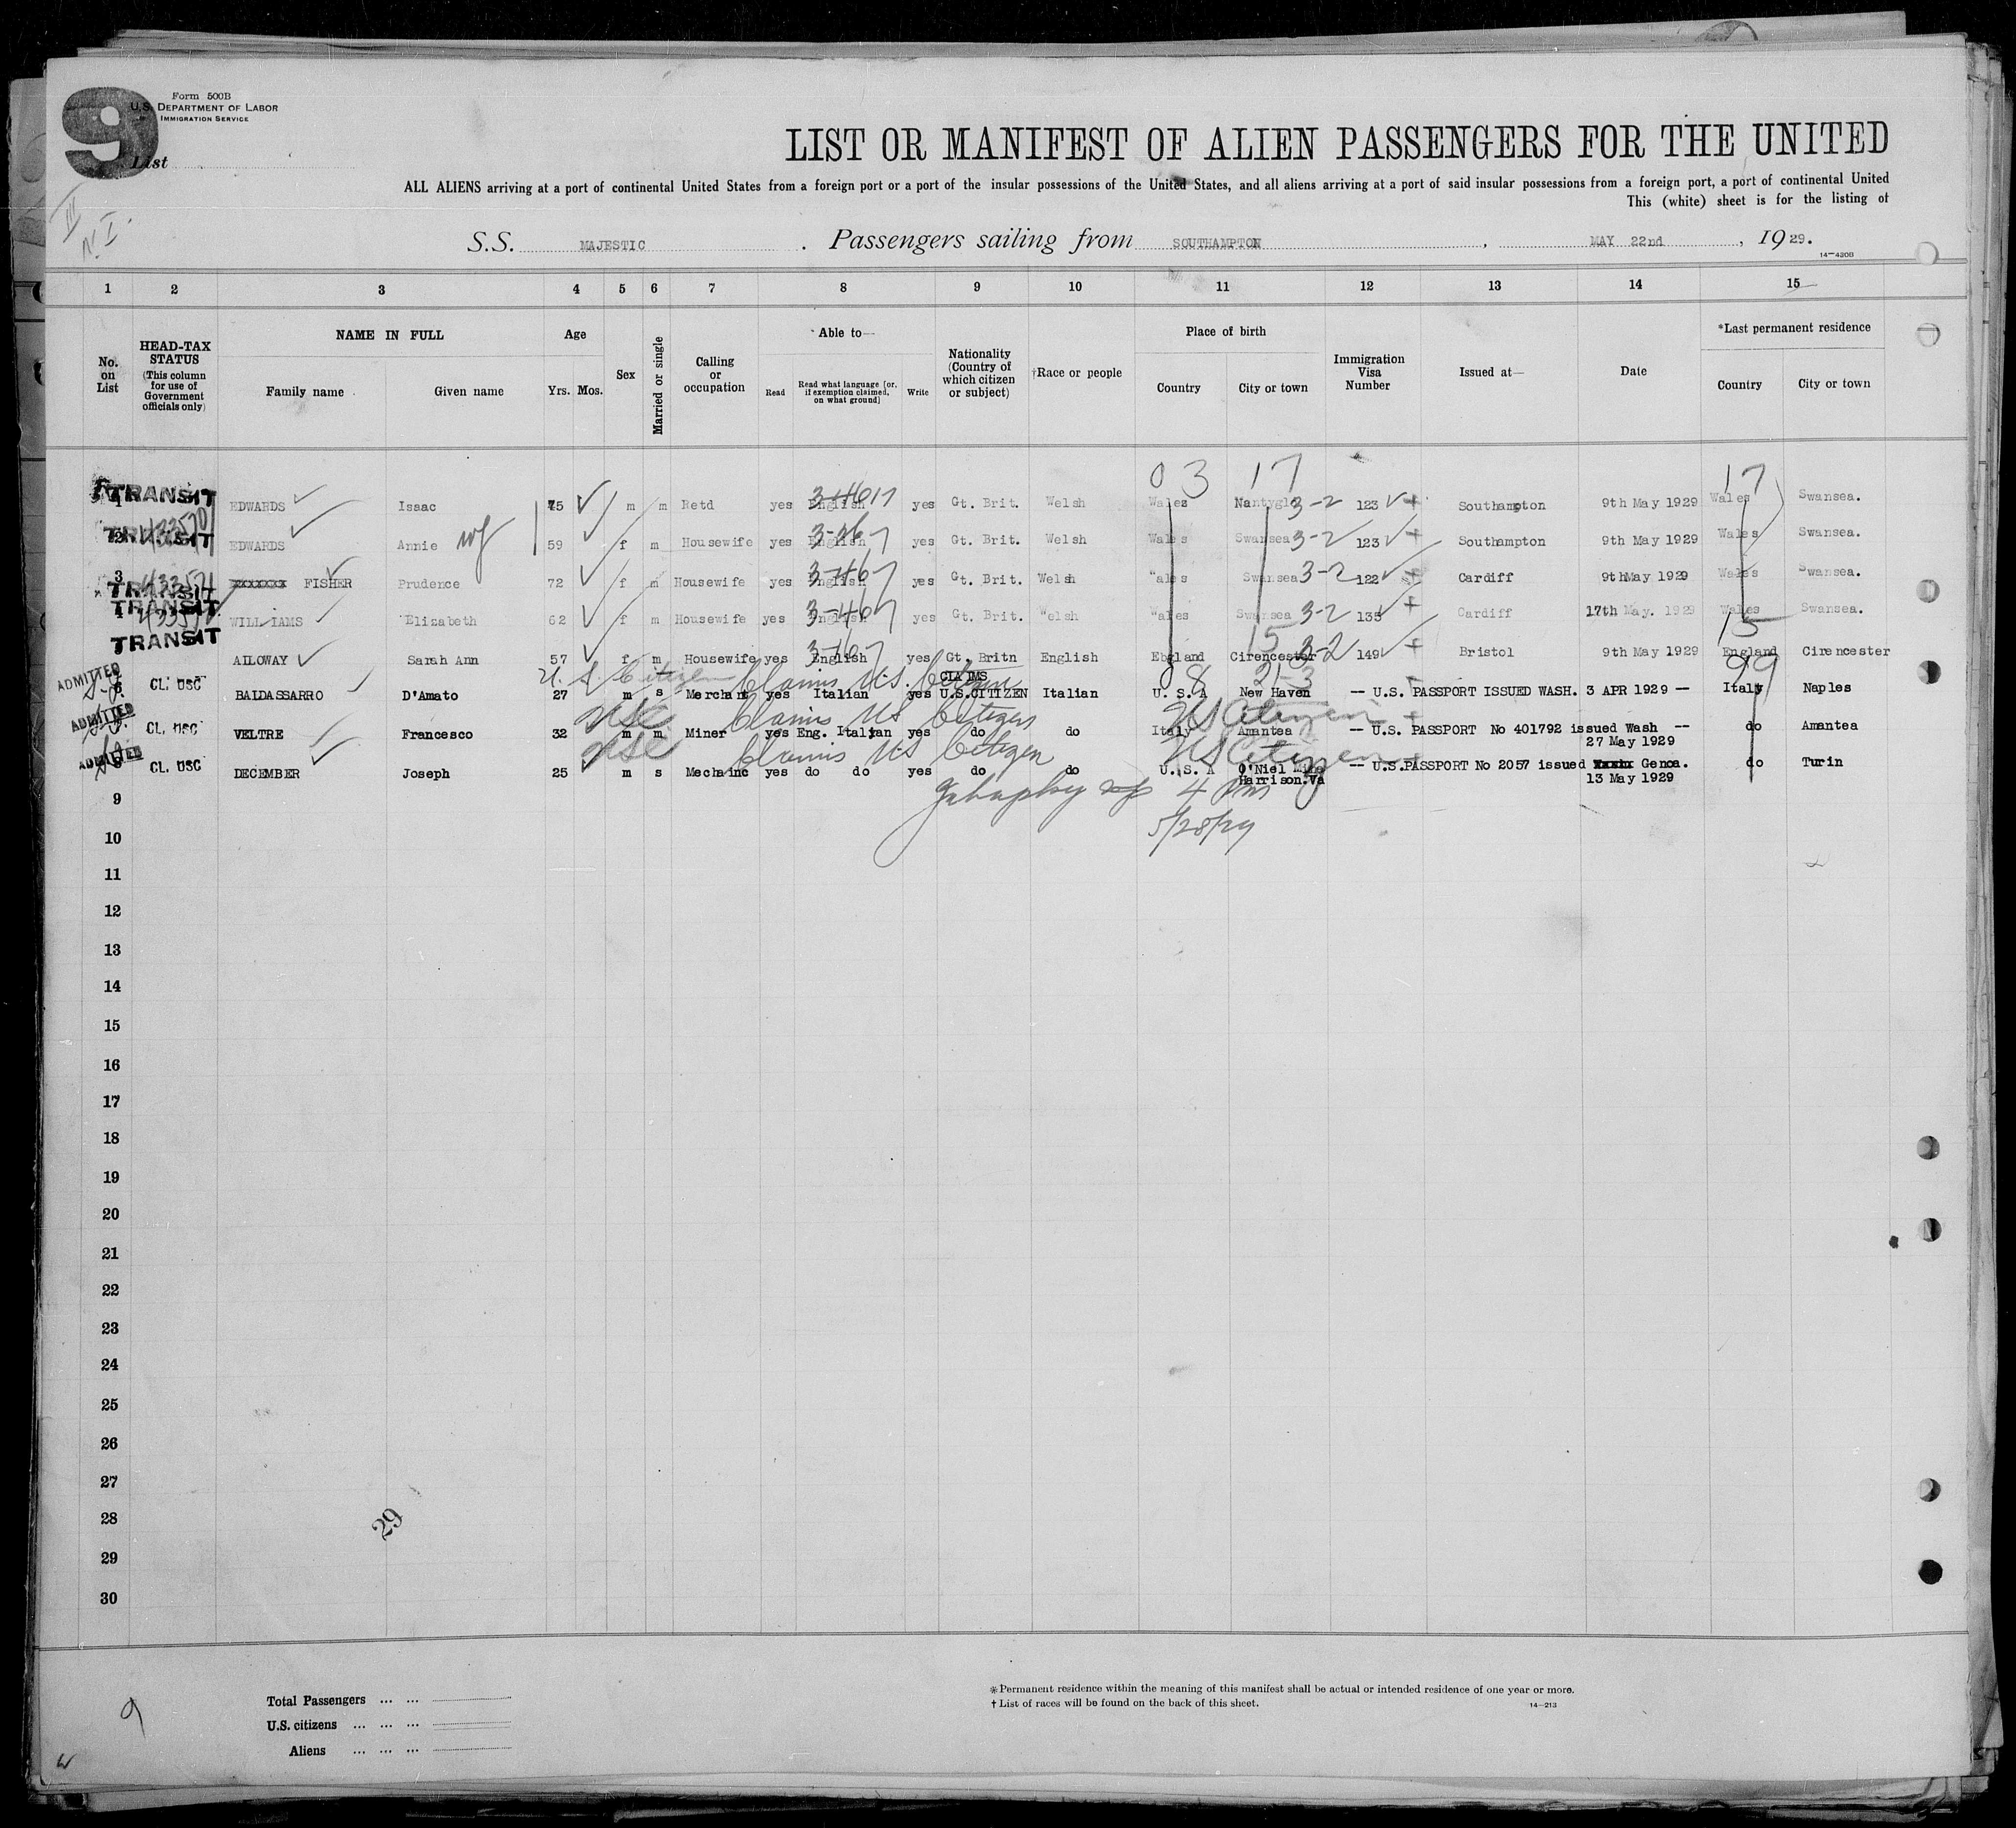 9
Form 500B
U.S. DEPARTMENT OF LABOR
IMMIGRATION SERVICE
List
III
N I
LIST OR MANIFEST OF ALIEN PASSENGERS FOR THE UNITED
ALL ALIENS arriving at a port of continental United States from a foreign port or a port of the insular possessions of the United States, and all aliens arriving at a port of said insular possessions from a foreign port, a port of continental United
This (white) sheet is for the listing of
S.S. MAJESTIC . Passengers sailing from SOUTHAMPTON , MAY 22nd , 1929.
14—420B
1 2 3 4 5 6 7 8 9 10 11 12 13 14 15
No. on List
HEAD-TAX STATUS (This column for use of Government officials only)
NAME IN FULL
Family name Given name
Age
Yrs. Mos.
Sex
Married or single
Calling or occupation
Able to—
Read Read what language (or, if exemption claimed, on what ground) Write
Nationality (Country of which citizen or subject)
†Race or people
Place of birth
Country City or town
Immigration Visa Number
Issued at—
Date
*Last permanent residence
Country City or town
03 17 17
TRANSIT 1 EDWARDS Isaac 75 m m Retd yes English yes Gt. Brit. Welsh Wales Nantyglo 3-2 123 Southampton 9th May 1929 Wales Swansea.
TRANSIT 2 EDWARDS Annie wf 59 f m Housewife yes English yes Gt. Brit. Welsh Wales Swansea 3-2 123 Southampton 9th May 1929 Wales Swansea.
TRANSIT 3 xxxxxxx FISHER Prudence 72 f m Housewife yes English 3-467 yes Gt. Brit. Welsh Wales Swansea 3-2 122 Cardiff 9thMay 1929 Wales Swansea.
TRANSIT 4 WILLIAMS Elizabeth 62 f m Housewife yes English 3-467 yes Gt. Brit. Welsh Wales Swansea 3-2 135 Cardiff 17th May. 1929 Wales Swansea.
15 15
TRANSIT AILOWAY Sarah Ann 57 f m Housewife yes English yes Gt. Britn English Ebgland Cirencester 3-2 149 Bristol 9th May 1929 England Cirencester
U.S. Citizen Claims U.S. Citizen CLAIMS 08 21-3 99
ADMITTED 6 CL. USC BALDASSARRO D'Amato 27 m s Merchant yes Italian yes U.S.CITIZEN Italian U.S.A New Haven -- U.S. PASSPORT ISSUED WASH. 3 APR 1929 -- Italy Naples
USC Claims US Citizen US Citizen
ADMITTED CL. USC VELTRE Francesco 32 m m Miner yes Eng. Italian yes do do Italy Amantea -- U.S. PASSPORT No 401792 issued Wash -- do Amantea
27 May 1929
USC Claims US Citizen US Citizen
ADMITTED 8 CL. USC DECEMBER Joseph 25 m s Mechainc yes do do yes do do U.S.A O'Niel Mile -- U.S.PASSPORT No 2057 issued xxxxx Genoa. do Turin
Harrison.Va 13 May 1929
9
4 Pm
5/28/29
10
11
12
13
14
15
16
17
18
19
20
21
22
23
24
25
26
27
28
29
29
30
9
Total Passengers ... ...
U.S. citizens ... ... ...
Aliens ... ... ...
*Permanent residence within the meaning of this manifest shall be actual or intended residence of one year or more.
†List of races will be found on the back of this sheet.
14—213